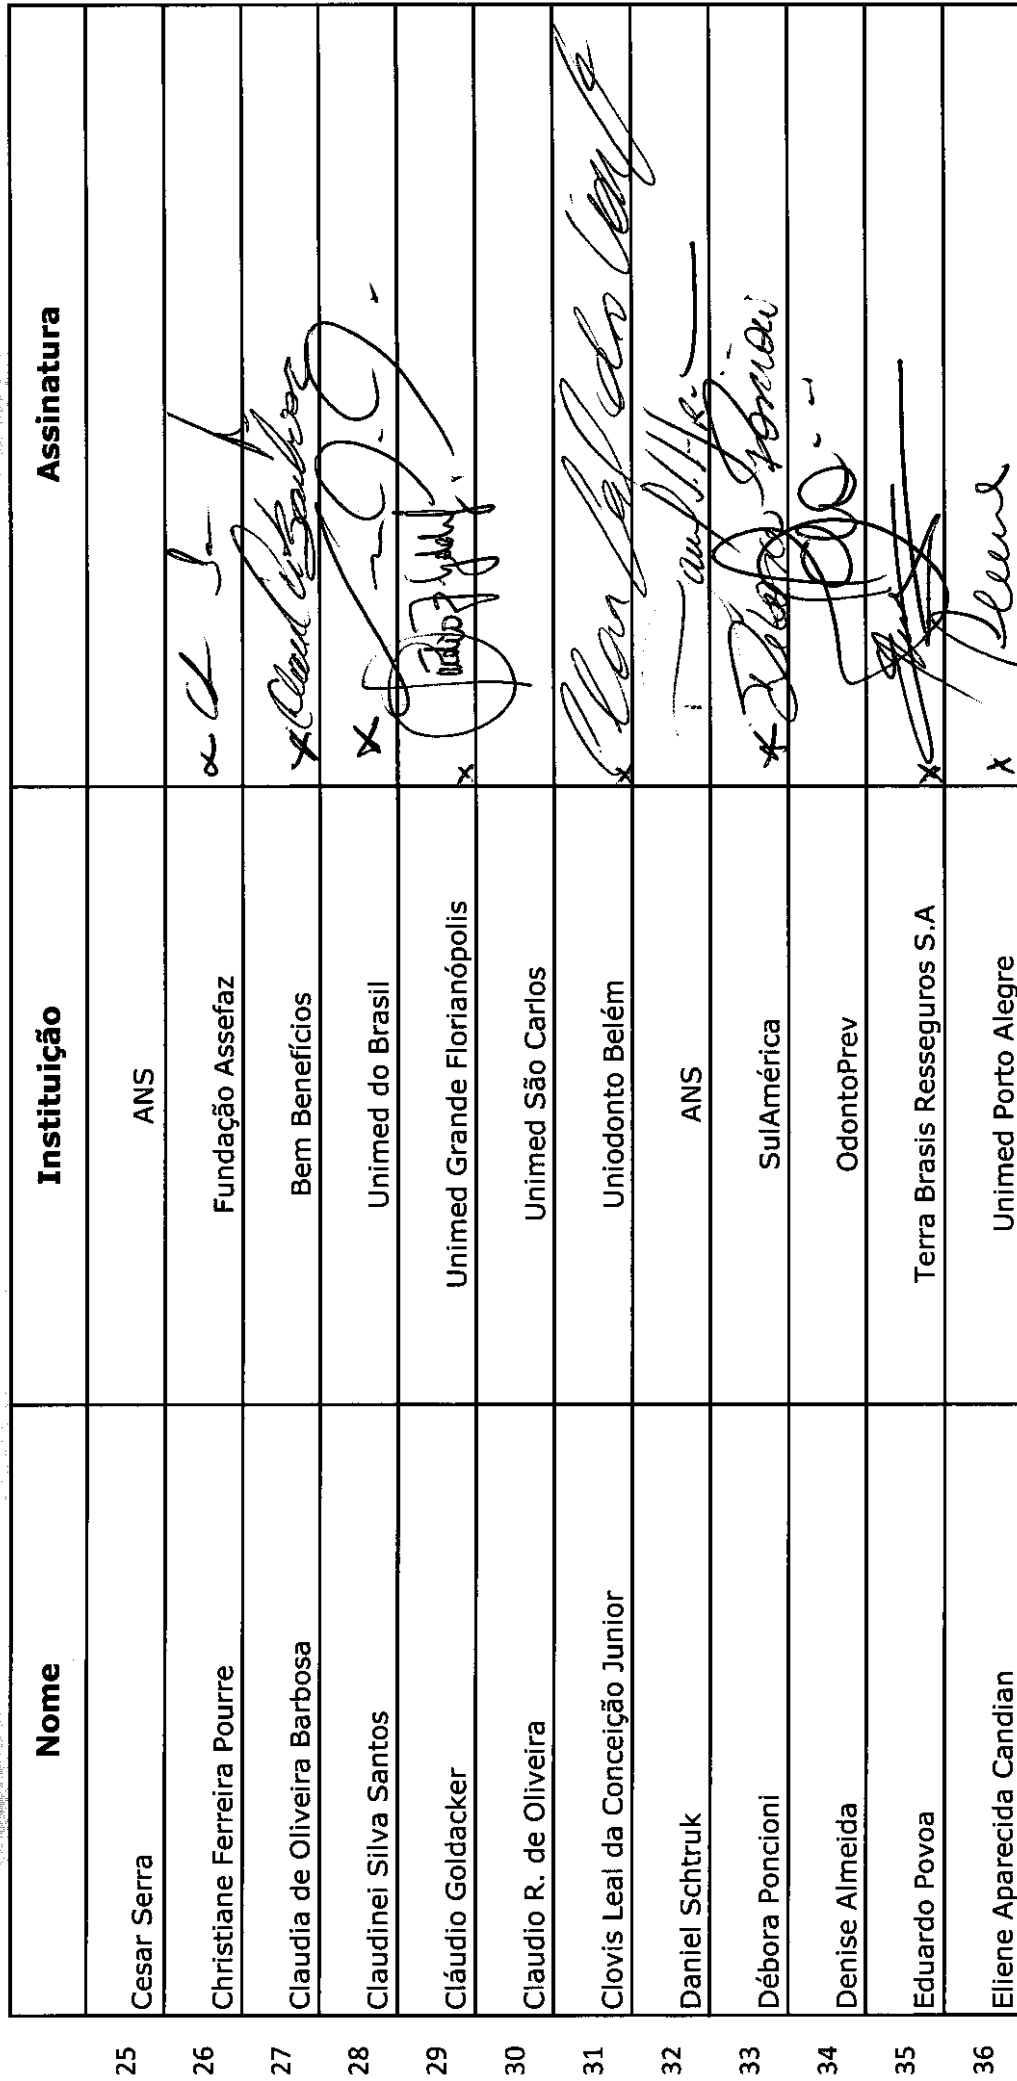 Nome Instituição Assinatura
25 Cesar Serra ANS
26 Christiane Ferreira Pourre Fundação Assefaz
27 Claudia de Oliveira Barbosa Bem Benefícios x
28 Claudinei Silva Santos Unimed do Brasil x
29 Cláudio Goldacker Unimed Grande Florianópolis x
30 Claudio R. de Oliveira Unimed São Carlos
31 Clovis Leal da Conceição Junior Uniodonto Belém x
32 Daniel Schtruk ANS
33 Débora Poncioni SulAmérica x Débora Poncioni
34 Denise Almeida OdontoPrev
35 Eduardo Povoa Terra Brasis Resseguros S.A x
36 Eliene Aparecida Candian Unimed Porto Alegre x